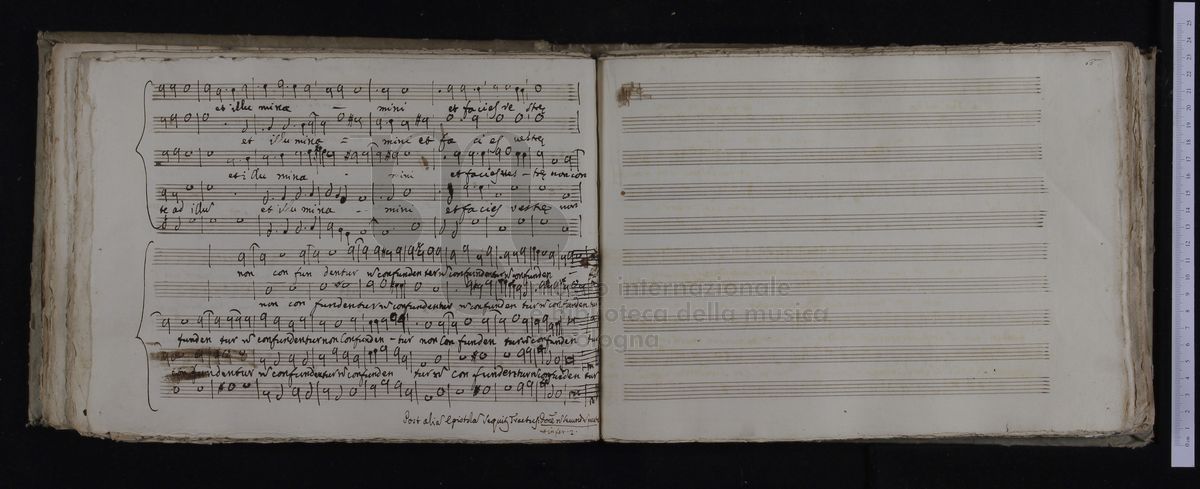 et illu mina — mini et facies ve stre
et illu mina = mini et fa ci es vestre
et illu mina - mini et facies ves - tre non con
te ad illu et illu mina — mini et facies vestre non
non con fun dentur n confundentur n confundentur n confunden
non con fundentur n confundentur n confunden tur n confunden
funden tur n confundentur non Confunden - tur non Con funden tur n confunden tu
confundentur n confundentur n confunden tur n con fundentur n confunden tur
Post alia Epistola sequit Tractus
65
museo internazionale
e biblioteca della musica
bologna